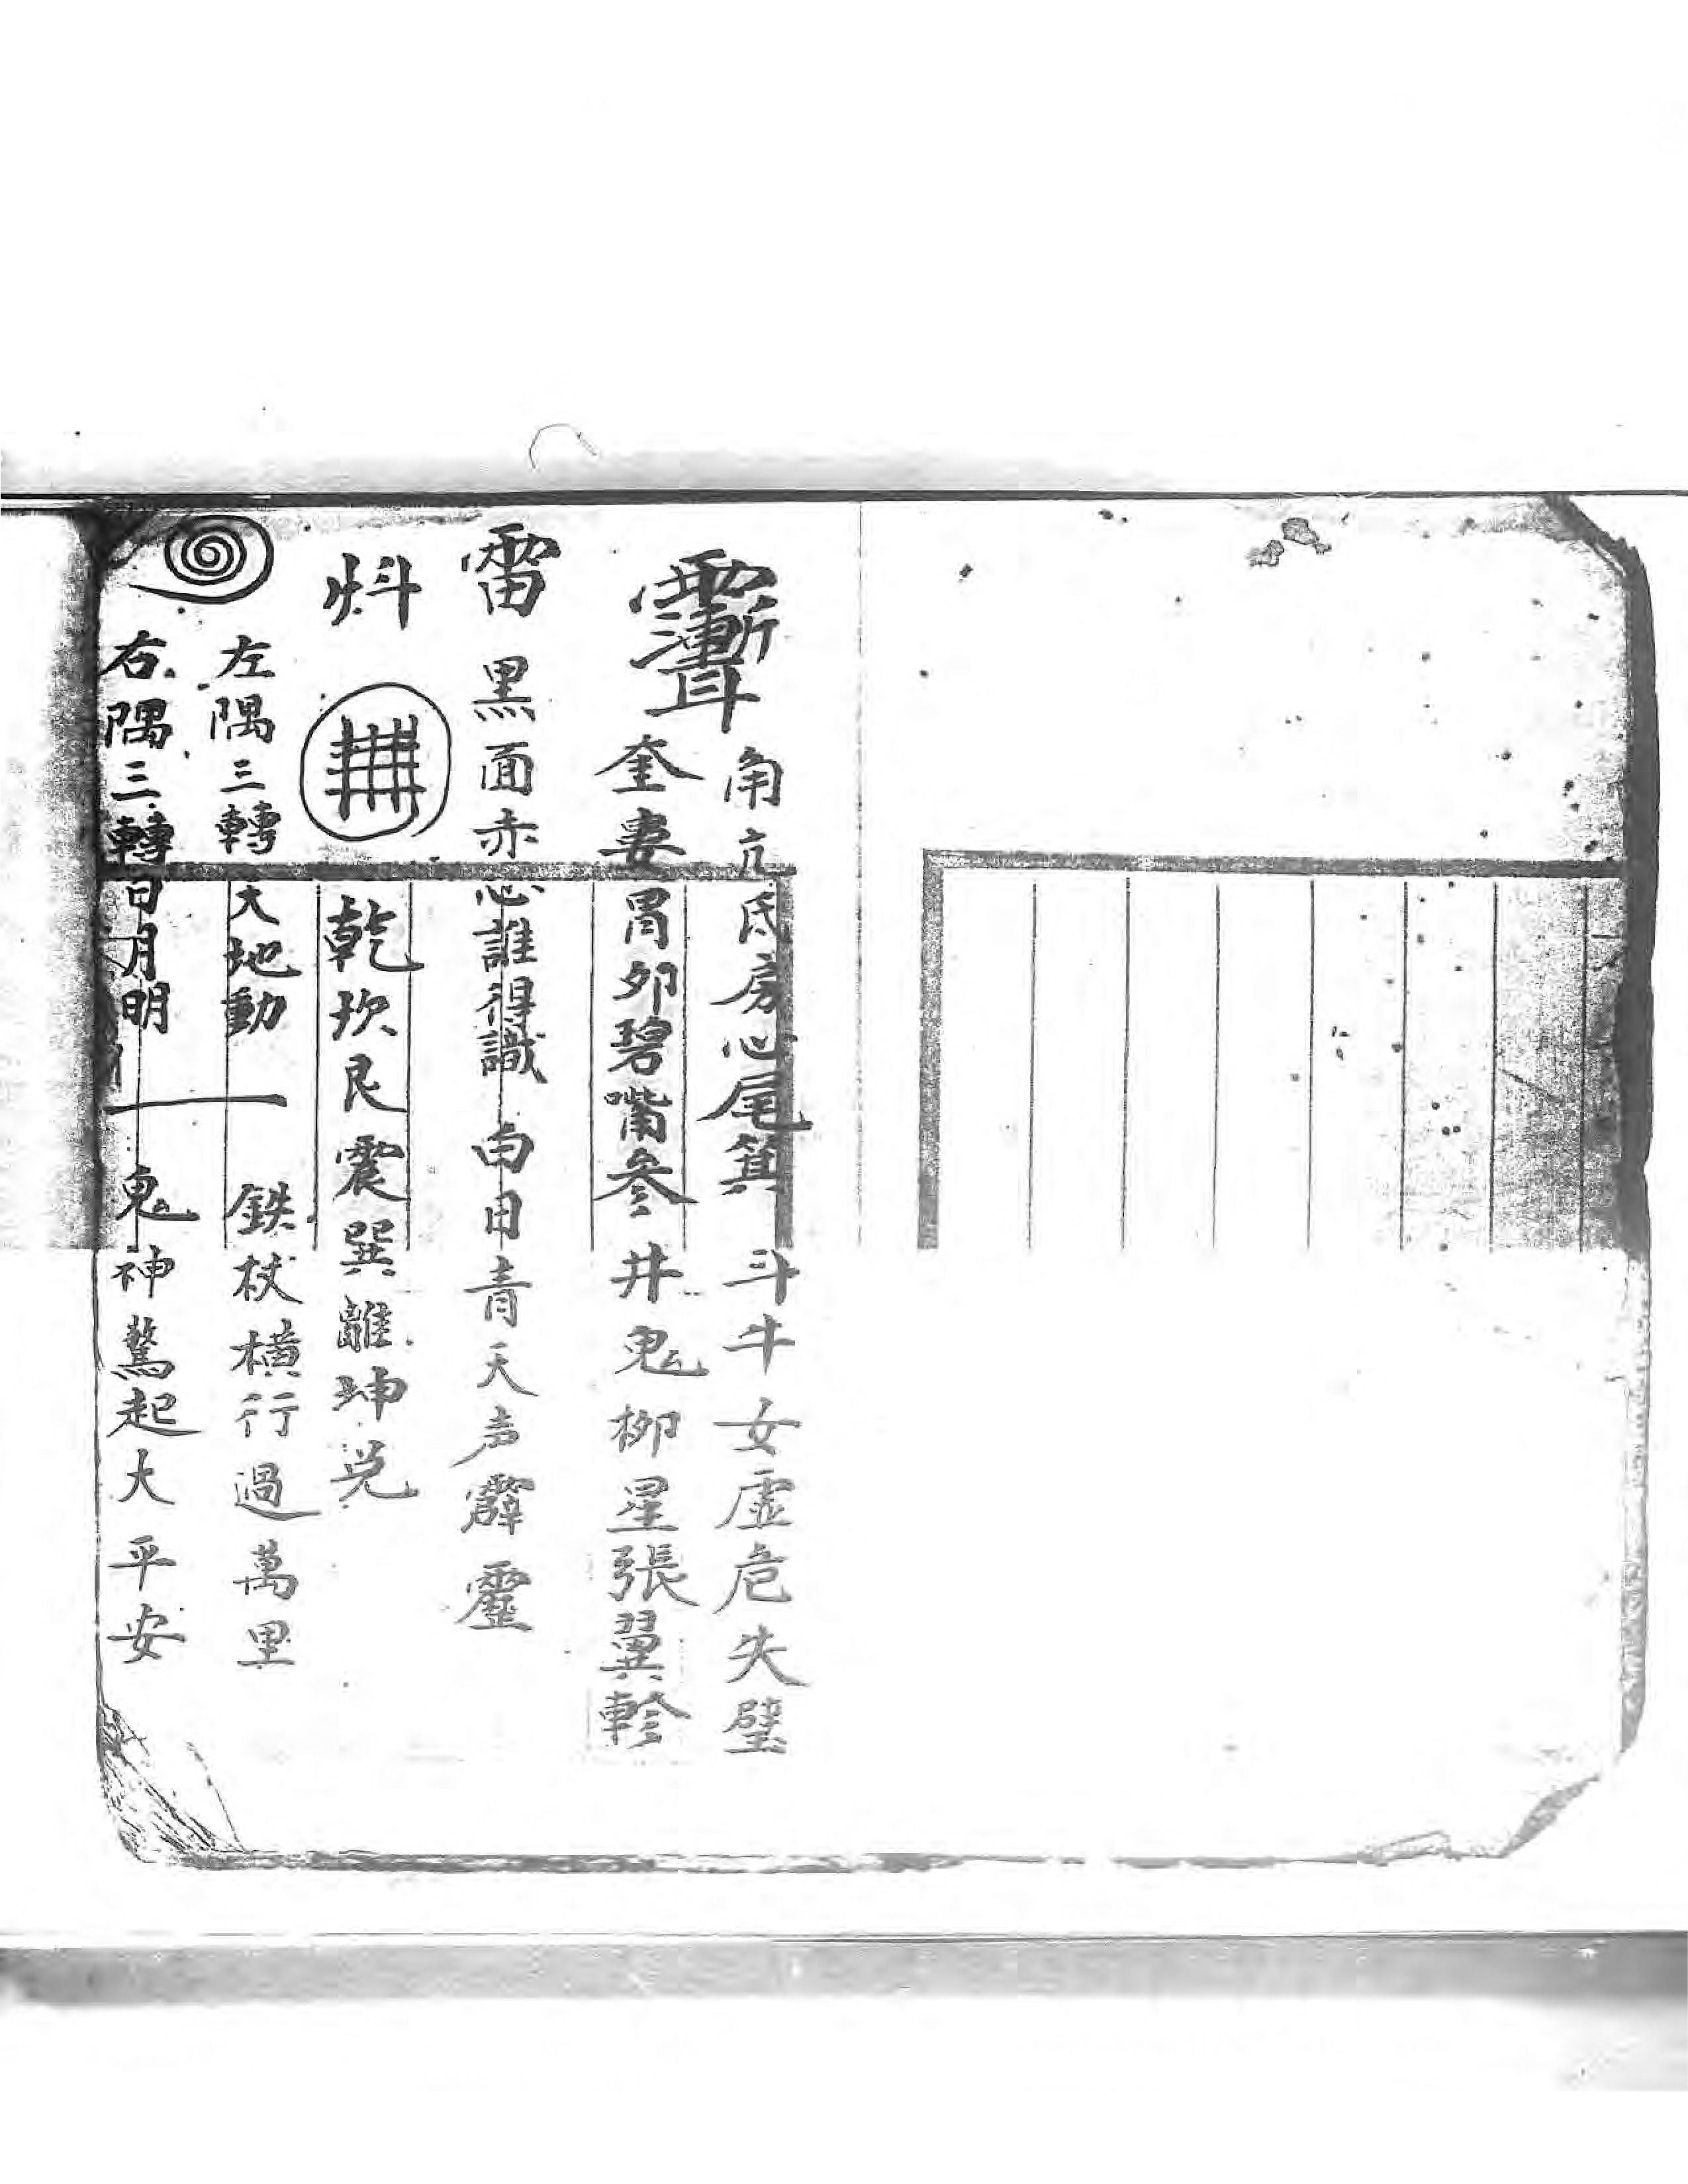 魙
角亢氐房心尾箕 斗牛女虚危失壁
奎婁胃夘碧嘴參 井鬼柳星張翼軫
雷 黒面赤心誰得識 白日青天声霹靂
炓 乾坎艮震巽離坤兌
左隅三轉天地動 鉄杖橫行過萬里
右隅三轉日月明 鬼神驚起大平安